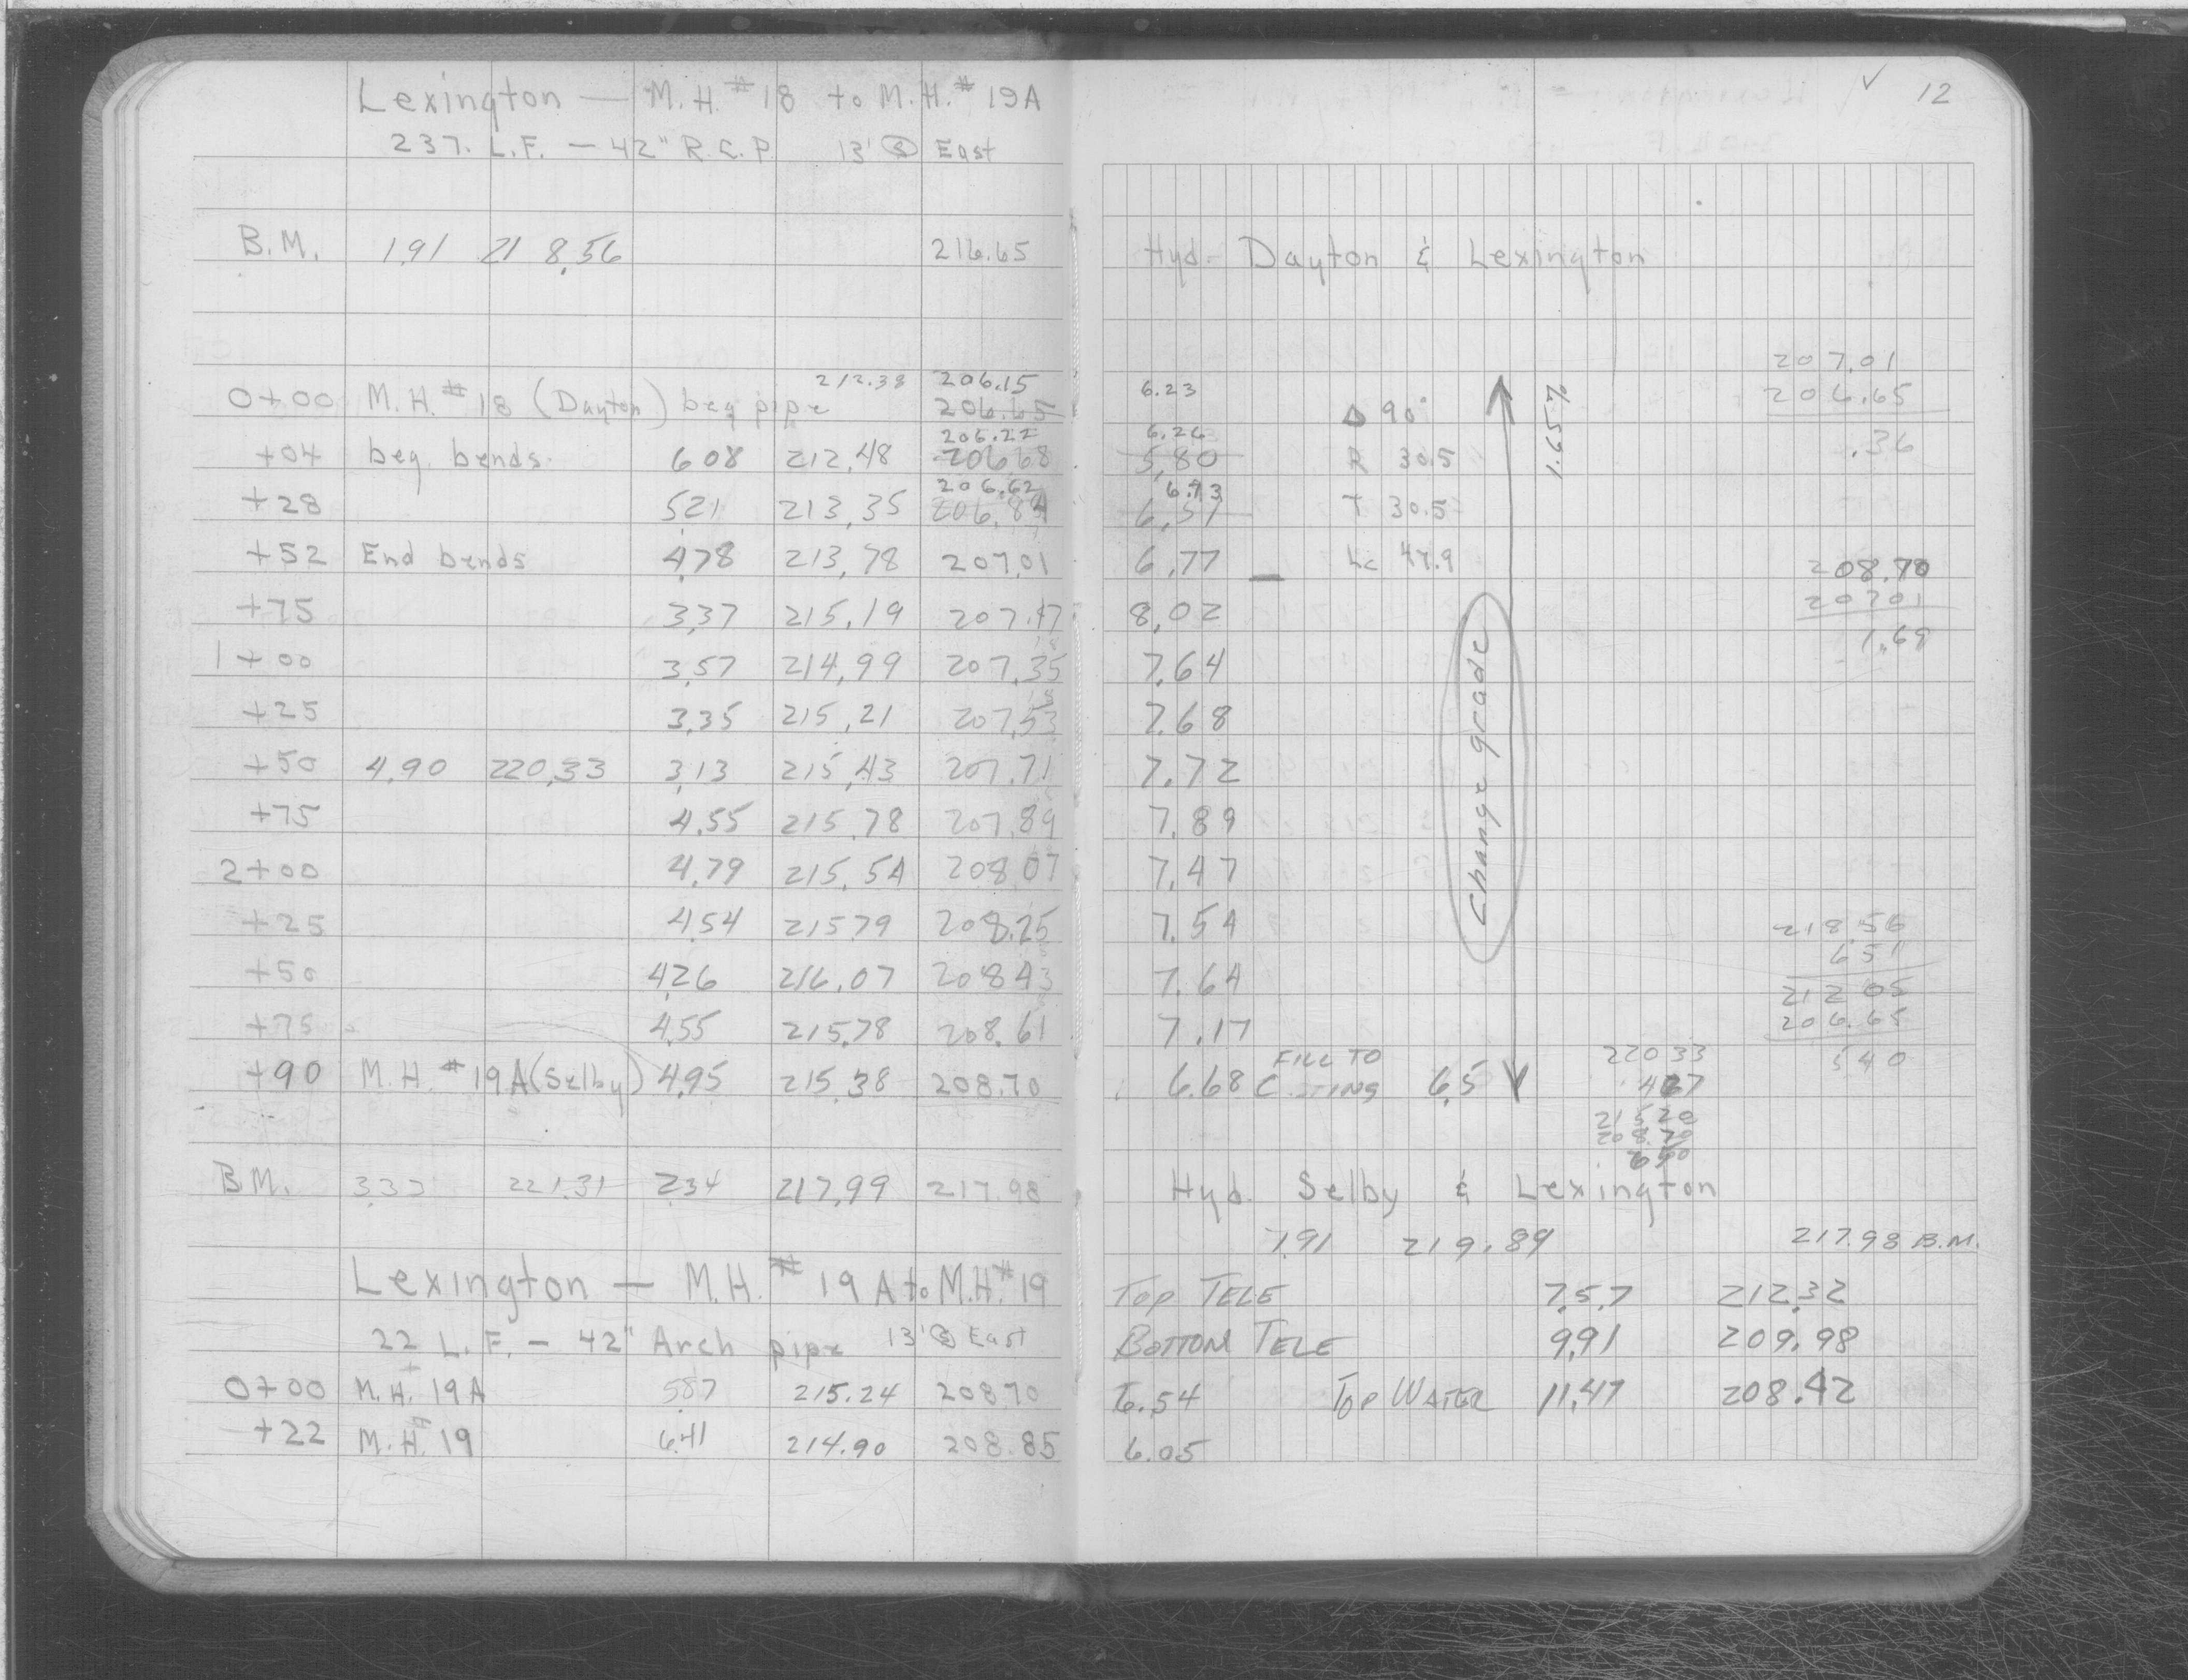 Lexington — M.H. #18 to M.H. #19A
237. L.F. — 42" R.C.P. 13' Ⓢ East
B.M. 1.91 218.56 216.65
212.38 206.15
0+00 M.H. #18 (Dayton) beg pipe 206.65
206.22
+04 beg. bends 6.08 212.48 206.68
206.62
+28 5.21 213.35 206.84
+52 End bends 4.78 213.78 207.01
+75 3.37 215.19 207.17
1+00 3.57 214.99 207.35
+25 3.35 215.21 207.53
+50 4.90 220.33 3.13 215.43 207.71
+75 4.55 215.78 207.89
2+00 4.79 215.54 208.07
+25 4.54 215.79 208.25
+50 4.26 216.07 208.43
+75 4.55 215.78 208.61
+90 M.H. #19A (Selby) 4.95 215.38 208.70
B.M. 3.33 221.31 2.34 217.99 217.98
Lexington — M.H. #19A to M.H. #19
22 L.F. — 42" Arch pipe 13' Ⓢ East
0+00 M.H. 19A 5.87 215.24 208.70
+22 M.H. #19 6.41 214.90 208.85
✓ 12
Hyd- Dayton & Lexington
207.01
206.65
.36
6.23
Δ 90°
6.26
5.80 R 30.5
6.73
6.51 T 30.5
6.77 Lc 47.9
8.02
7.64
7.68
7.72
7.89
7.47
7.54
7.64
7.17
6.68 FILL TO CASTING 6.5
Change grade
208.70
207.01
1.69
218.56
6.51
212.05
206.65
5.40
220.33
215.20
208.70
6.50
Hyd. Selby & Lexington
1.91 219.89 217.98 B.M.
TOP TELE 7.57 212.32
BOTTOM TELE 9.91 209.98
6.54 TOP WATER 11.47 208.42
6.05